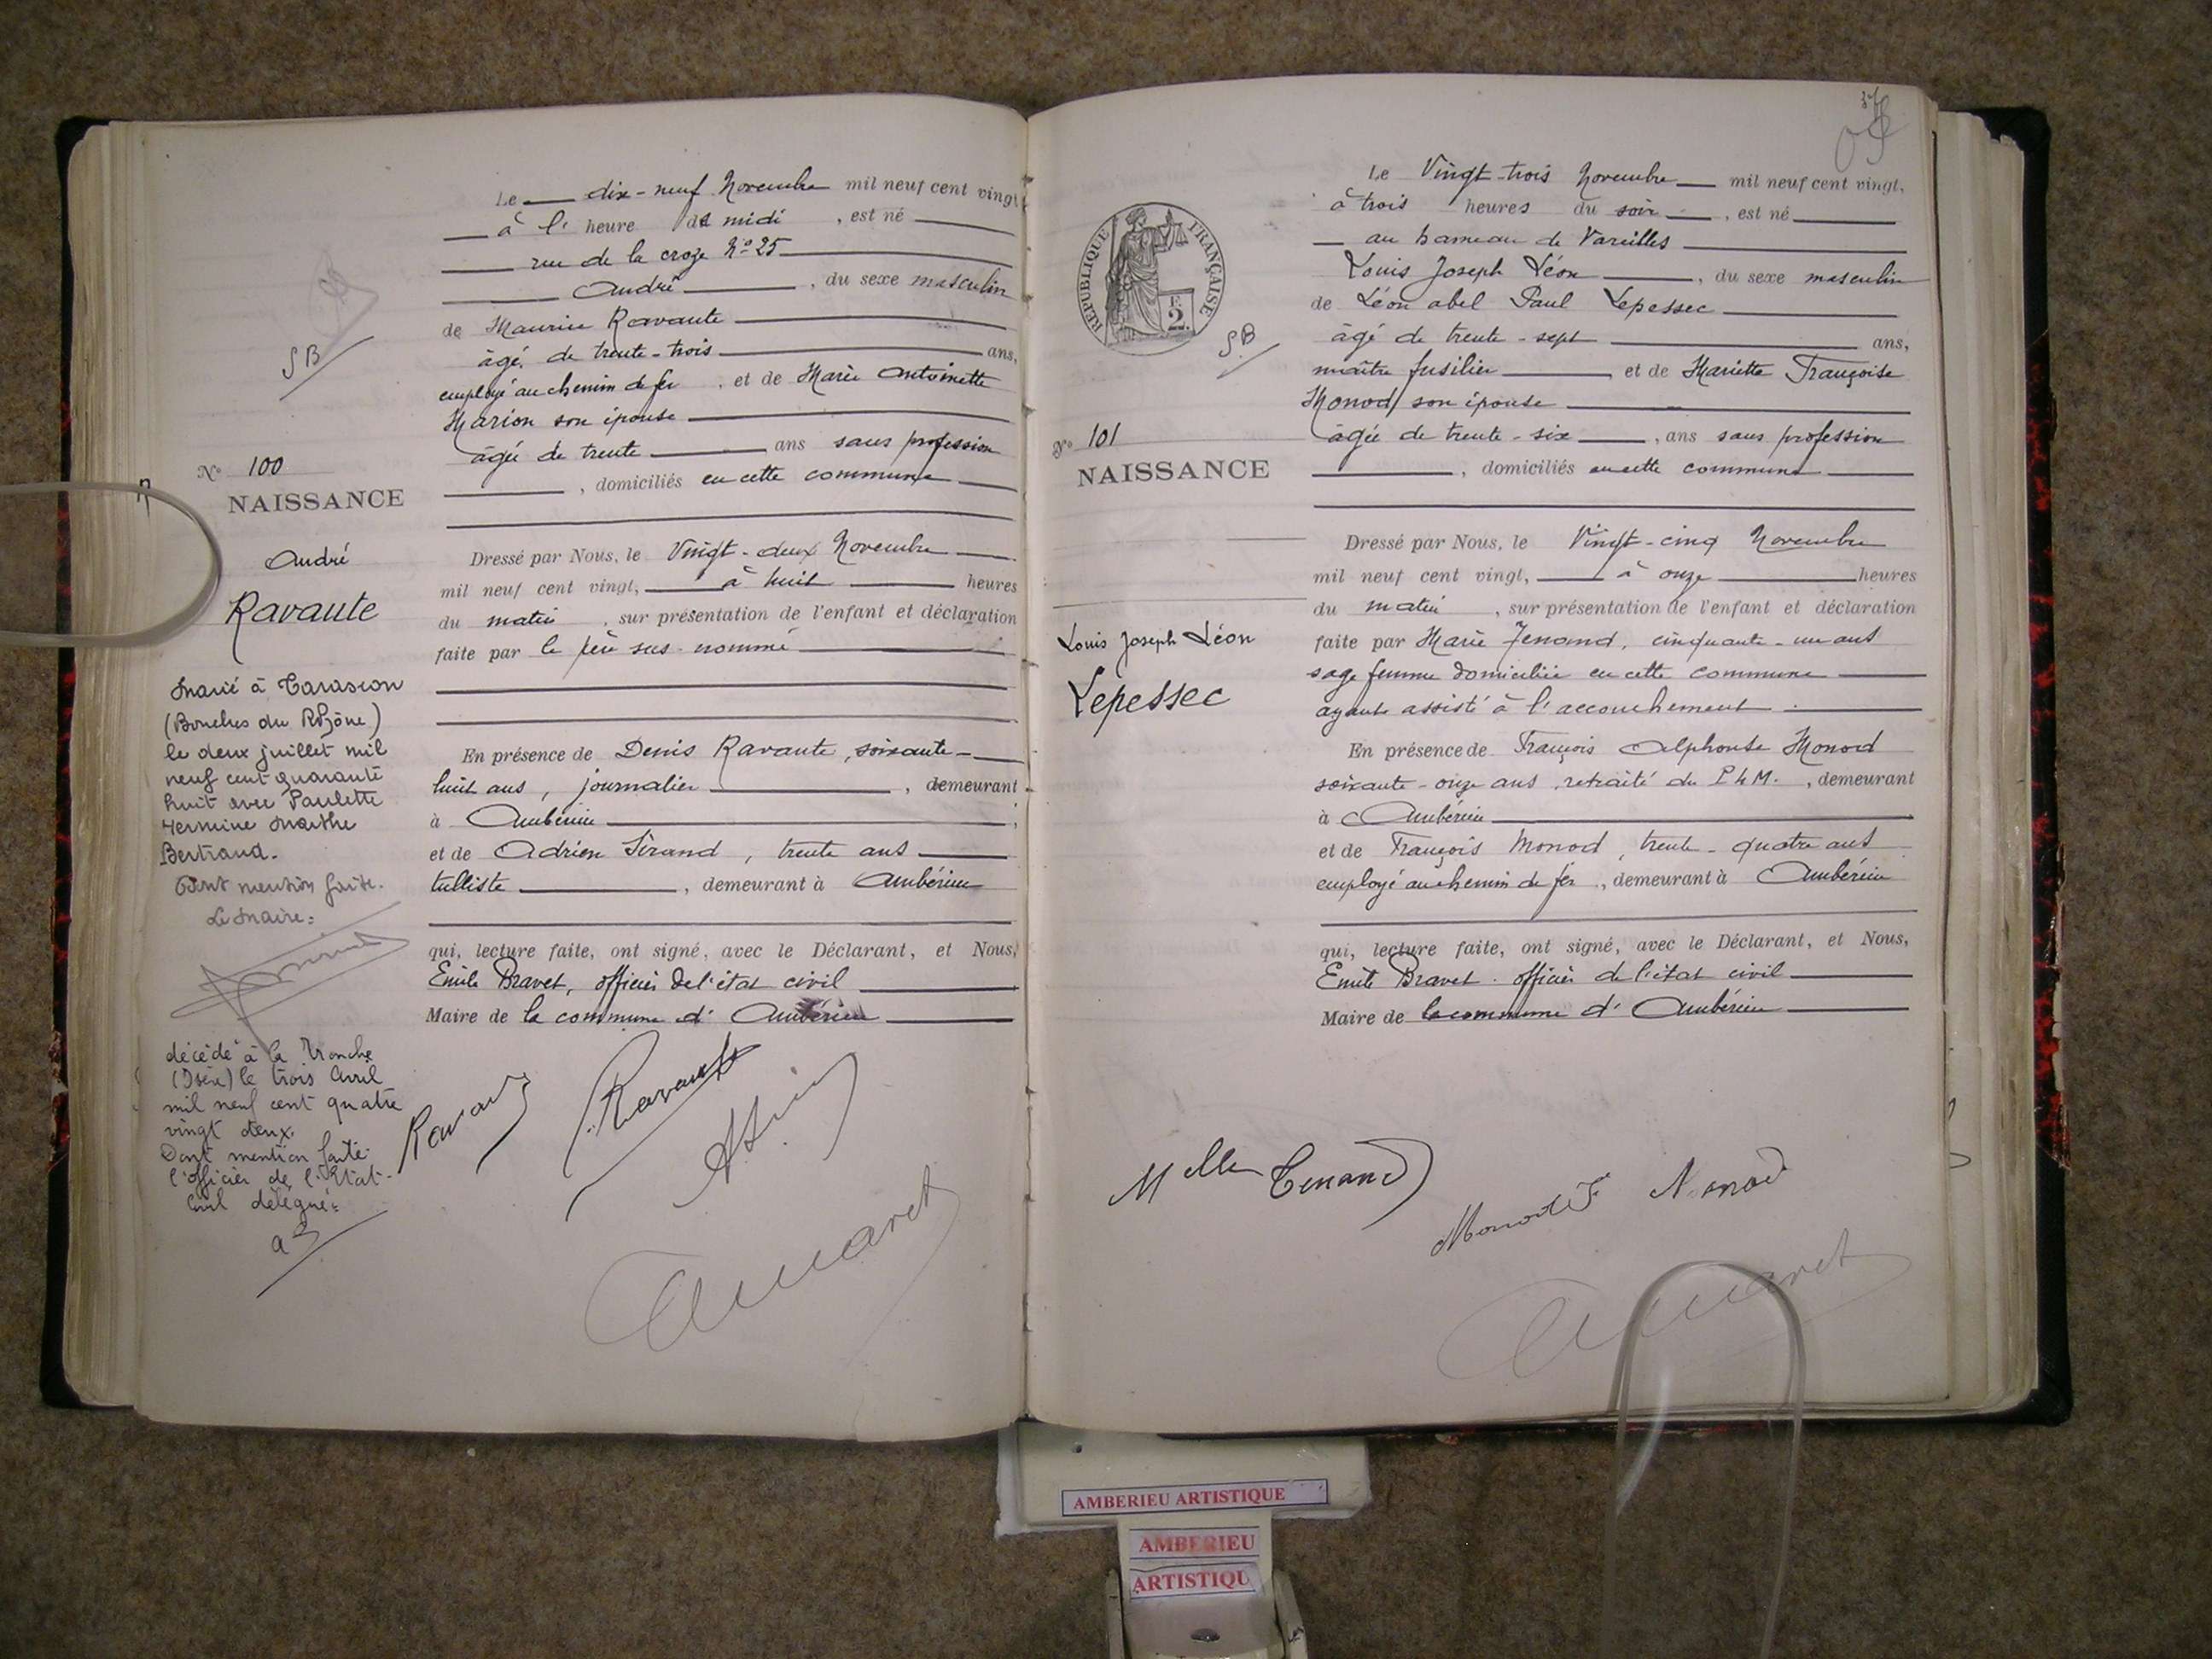 Le dix-neuf Novembre mil neuf cent vingt
à l' heure de midi , est né
rue de la croze N° 25
André , du sexe masculin
de Maurice Ravaute
âgé de trente-trois ans,
employé au chemin de fer , et de Marie Antoinette
Marion son épouse
âgée de trente ans sans profession
, domiciliés en cette commune
SB
N° 100
NAISSANCE
André
Ravaute
Dressé par Nous, le Vingt-deux Novembre
mil neuf cent vingt, à huit heures
du matin , sur présentation de l'enfant et déclaration
faite par le père sus-nommé
En présence de Denis Ravaute, soixante-
huit ans, journalier , demeurant
à Ambérieu
et de Adrien Sirand, trente ans
tulliste , demeurant à Ambérieu
qui, lecture faite, ont signé, avec le Déclarant, et Nous,
Emile Bravet, officier de l'état civil
Maire de la commune d' Ambérieu
Marié à Tarascon
(Bouches du Rhône)
le deux juillet mil
neuf cent quarante
huit avec Paulette
Hermine Marthe
Bertrand.
Dont mention faite.
Le Maire:
décédé à la Tronche
(Isère) le trois Avril
mil neuf cent quatre
vingt deux.
Dont mention faite
l'officier de l'Etat-
Civil délégué:
Ravaute
RÉPUBLIQUE FRANÇAISE
SB
Le Vingt-trois Novembre mil neuf cent vingt,
à trois heures du soir , est né
au hameau de Vareilles
Louis Joseph Léon , du sexe masculin
de Léon Abel Paul Lepessec
âgé de trente-sept ans,
maître fusilier et de Mariette Françoise
Monod son épouse
âgée de trente-six , ans sans profession
, domiciliés en cette commune
N° 101
NAISSANCE
Louis Joseph Léon
Lepessec
Dressé par Nous, le Vingt-cinq Novembre
mil neuf cent vingt, à onze heures
du matin , sur présentation de l'enfant et déclaration
faite par Marie Tenand, cinquante-un ans
sage femme domiciliée en cette commune
ayant assisté à l'accouchement
En présence de François Alphonse Monod
soixante-onze ans, retraité du P L M. , demeurant
à Ambérieu
et de François Monod, trente-quatre ans
employé au chemin de fer , demeurant à Ambérieu
qui, lecture faite, ont signé, avec le Déclarant, et Nous,
Emile Bravet officier de l'état civil
Maire de la commune d' Ambérieu
Melle Tenand
Monod F Monod
AMBERIEU ARTISTIQUE
AMBERIEU
ARTISTIQU